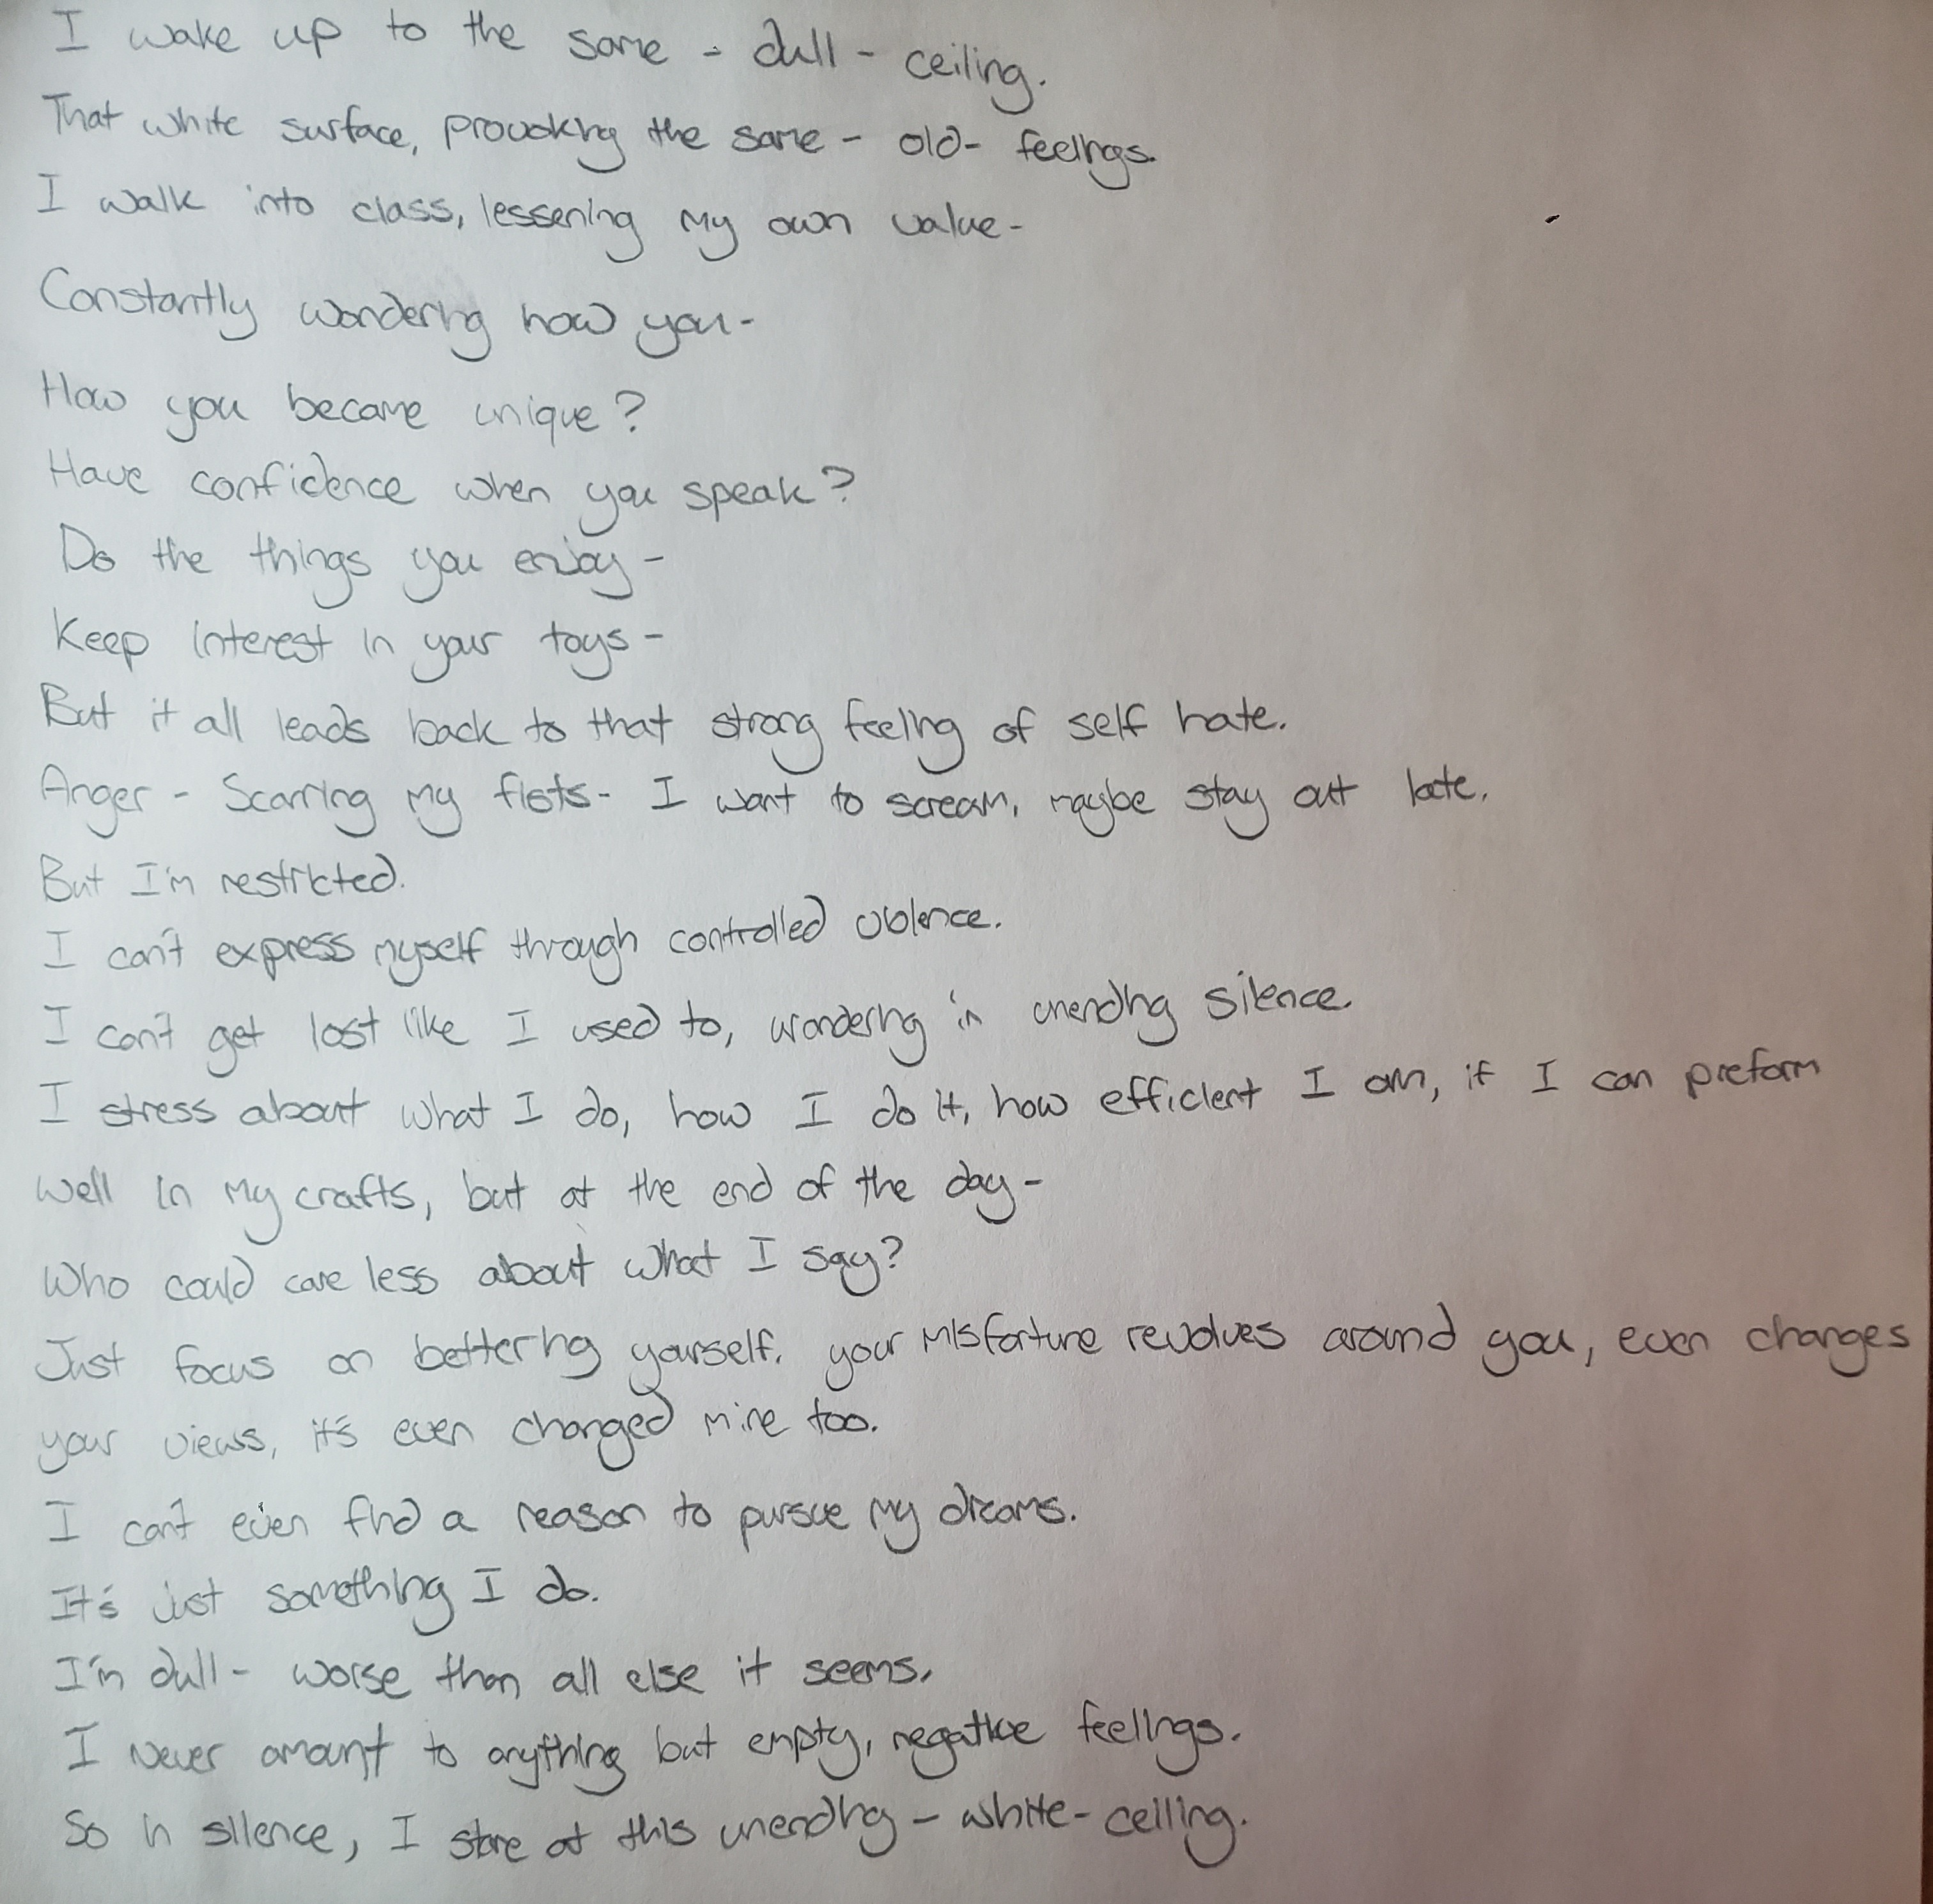 I wake up to the same - dull - ceiling.
That white surface, provoking the same - old - feelings.
I walk into class, lessening my own value -
Constantly wondering how you -
How you became unique?
Have confidence when you speak?
Do the things you enjoy -
Keep interest in your toys -
But it all leads back to that strong feeling of self hate.
Anger - Scarring my fists - I want to scream, maybe stay out late.
But I'm restricted.
I can't express myself through controlled violence.
I can't get lost like I used to, wondering in unending silence.
I stress about what I do, how I do it, how efficient I am, if I can preform
well in my crafts, but at the end of the day -
Who could care less about what I say?
Just focus on bettering yourself. your misfortune revolves around you, even changes
your views, it's even changed mine too.
I can't even find a reason to pursue my dreams.
It's just something I do.
I'm dull - worse than all else it seems.
I never amount to anything but empty, negative feelings.
So in silence, I stare at this unending - white - ceiling.